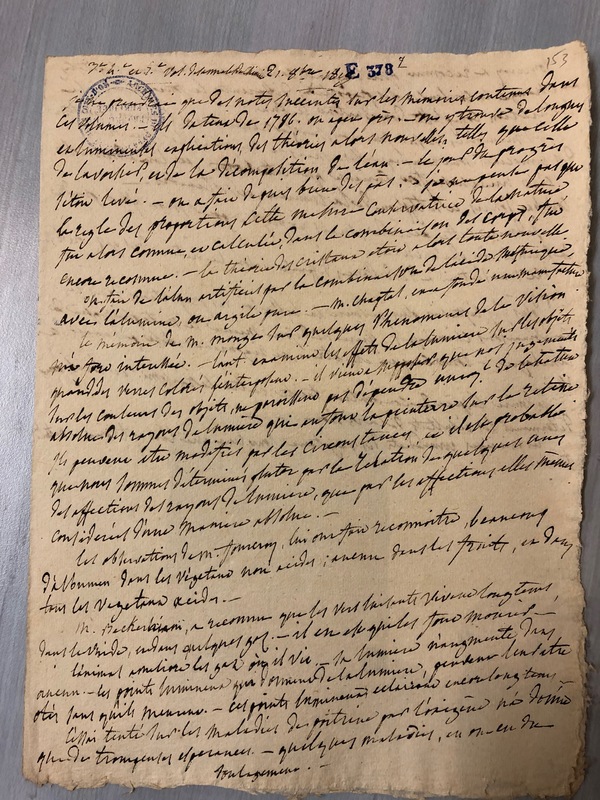 153
E 378
que des notes succintes sur les mémoires contenus dans
ces volumes. — ils datent de 1786. ou à peu près. — on y trouve de longues
et lumineuses explications des théories alors nouvelles, telles que celle
de Lavoisier, et de la décomposition de l'eau. — le jour du progrès
s'étoit levé. — on a fait depuis bien des pas. — je ne pense pas que
la règle des proportions cette mesure conservatrice de la nature
fut alors connue, et calculée, dans la combinaison des corps, fut
encore reconnue. — la théorie des cristaux étoit alors toute nouvelle
on fait de l'alun artificiel par la combinaison de l'acide
avec l'alumine, ou argile pure. — M. Chaptal, en a fondé une manufacture
le mémoire de M. Monge sur quelques Phénomènes de la Vision
m'a fort intéressé. — il ont examiné les effets de la lumière sur les objets
quand des verres colorés s'interposent. — il que nos jugements
sur les couleurs des objets, ne paroissent pas dépendre de la nature
absolue des rayons de lumière qui en font la peinture sur la rétine
ils peuvent être modifiés par les circonstances, et il est probable
que nous sommes déterminés plutôt par la relation de quelques unes
des affections des rayons de lumière, que par les affections elles mêmes
considérées d'une manière absolue. —
les observations de M. Fourcroy, lui ont fait reconnoître, beaucoup
d'albumen dans les végétaux non acides; aucun dans les fruits, et dans
tous les végétaux acides. —
M. a reconnu que les vers luisants vivent longtems,
dans le vide, et dans quelques gaz. — il en est qui les font mourir —
l'animal améliore les gaz où il vit. — sa lumière n'augmente dans
aucun. — les points lumineux qui donnent de la lumière, peuvent lui être
ôtés sans qu'il meure. — ces points lumineux éclairent encore longtems
l'essai tenté sur les maladies de poitrine par l'oxigène n'a donné
que de trompeuses espérances. — quelques maladies, en ont eu du
soulagement. —